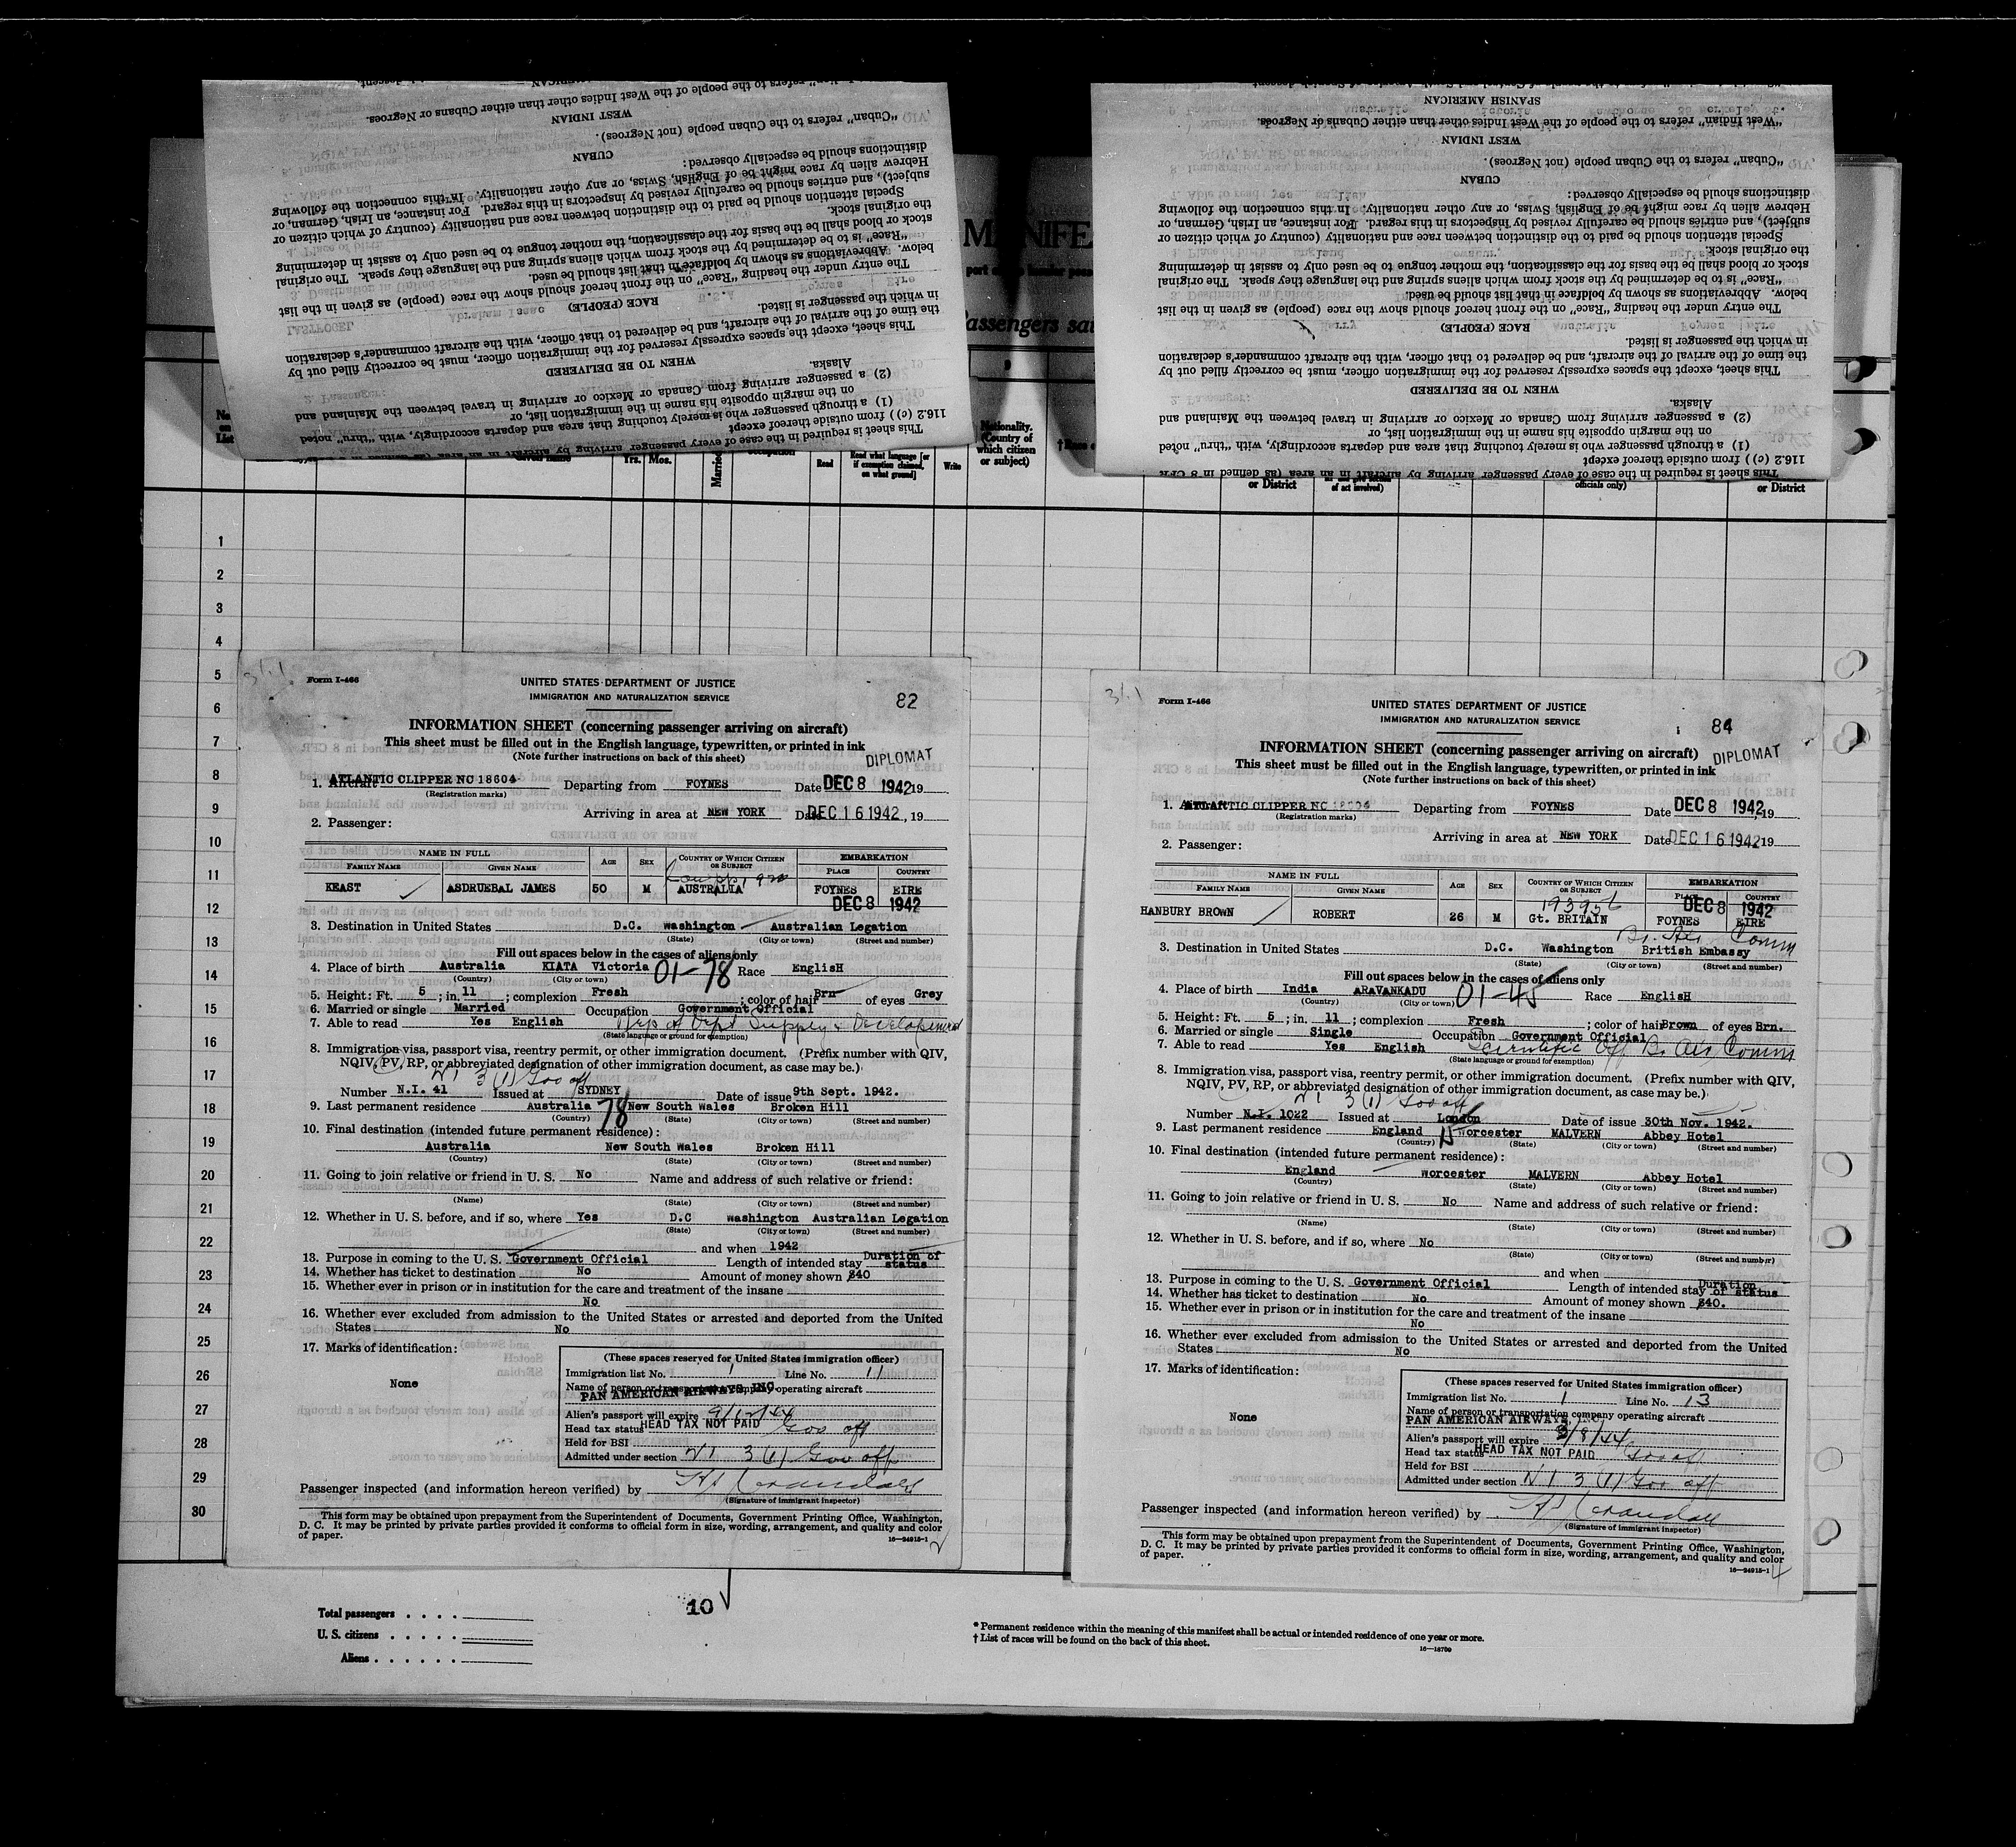 "Cuban" refers to the Cuban people (not Negroes).
WEST INDIAN
"West Indian" refers to the people of the West Indies other than either Cubans or Negroes.
This sheet is required in the case of every passenger arriving by aircraft in an area (as defined in 8 CFR
116.2 (c)) from outside thereof except
(1) a through passenger who is merely touching that area and departs accordingly, with "thru" noted
on the margin opposite his name in the immigration list, or
(2) a passenger from Canada or Mexico or arriving in travel between the Mainland and
Alaska.
WHEN TO BE DELIVERED
This sheet, except the spaces expressly reserved for the immigration officer, must be correctly filled out by
the time of the arrival of the aircraft, and be delivered to that officer, with the aircraft commander's declaration
in which the passenger is listed.
RACE (PEOPLE)
The entry under the heading "Race" on the front hereof should show the race (people) as given in the list
below. Abbreviations as shown by boldface in that list should be used.
"Race" is to be determined by the stock from which aliens spring and the language they speak. The original
stock or blood shall be the basis for the classification, the mother tongue to be used only to assist in determining
the original stock.
Special attention should be paid to the distinction between race and nationality (country of which citizen or
subject), and entries should be carefully revised by inspectors in this regard. For instance, an Irish, German, or
Hebrew alien by race might be of English, Swiss, or any other nationality. In this connection the following
distinctions should be especially observed:
CUBAN
"Cuban" refers to the Cuban people (not Negroes).
WEST INDIAN
"West Indian" refers to the people of the West Indies other than either Cubans or Negroes.
SPANISH AMERICAN
MANIFE
Passengers sai
9
No. on List
Yrs. Mos.
Married
Read
Read what language [or if exemption claimed, on what ground]
Write
Nationality. (Country of which citizen or subject)
or District
officials only)
or District
1
2
3
4
5
6
7
8
9
10
11
12
13
14
15
16
17
18
19
20
21
22
23
24
25
26
27
28
29
30
Form I-466
UNITED STATES DEPARTMENT OF JUSTICE
IMMIGRATION AND NATURALIZATION SERVICE
82
INFORMATION SHEET (concerning passenger arriving on aircraft)
This sheet must be filled out in the English language, typewritten, or printed in ink
(Note further instructions on back of this sheet)
DIPLOMAT
1. Aircraft ATLANTIC CLIPPER NC 18604 Departing from FOYNES Date DEC 8 1942 19
(Registration marks)
Arriving in area at NEW YORK Date DEC 16 1942, 19
2. Passenger:
NAME IN FULL AGE SEX COUNTRY OF WHICH CITIZEN OR SUBJECT EMBARKATION
FAMILY NAME GIVEN NAME PLACE COUNTRY
KEAST ASDRUEBAL JAMES 50 M AUSTRALIA FOYNES EIRE
DEC 8 1942
3. Destination in United States D.C. Washington Australian Legation
(State) (City or town) (Street and number)
Fill out spaces below in the cases of aliens only
4. Place of birth Australia KIATA Victoria 01-78 Race EnglisH
(Country) (City or town)
5. Height: Ft. 5 ; in. 11 ; complexion Fresh ; color of hair Brn of eyes Grey
6. Married or single Married Occupation Government Official
7. Able to read Yes English Rep of Dept Supply & Development
(State language or ground for exemption)
8. Immigration visa, passport visa, reentry permit, or other immigration document. (Prefix number with QIV,
NQIV, PV, RP, or abbreviated designation of other immigration document, as case may be.)
3 (1) Gov off
Number N.I. 41 Issued at SYDNEY Date of issue 9th Sept. 1942.
9. Last permanent residence Australia 78 New South Wales Broken Hill
(Country) (State) (City or town) (Street and number)
10. Final destination (intended future permanent residence):
Australia New South Wales Broken Hill
(Country) (State) (City or town) (Street and number)
11. Going to join relative or friend in U. S. No Name and address of such relative or friend:
(Name) (State) (City or town) (Street and number)
12. Whether in U. S. before, and if so, where Yes D.C Washington Australian Legation
(State) (City or town) (Street and number)
and when 1942
13. Purpose in coming to the U. S. Government Official Length of intended stay Duration of status
14. Whether has ticket to destination No Amount of money shown $40
15. Whether ever in prison or in institution for the care and treatment of the insane
No
16. Whether ever excluded from admission to the United States or arrested and deported from the United
States No
17. Marks of identification:
None
(These spaces reserved for United States immigration officer)
Immigration list No. 1 Line No. 11
Name of person or transportation company operating aircraft
PAN AMERICAN AIRWAYS, INC.
Alien's passport will expire 9/12/44
Head tax status HEAD TAX NOT PAID Gov off
Held for BSI
Admitted under section NI 3 (1) Gov off
Passenger inspected (and information hereon verified) by
(Signature of immigrant inspector)
This form may be obtained upon prepayment from the Superintendent of Documents, Government Printing Office, Washington,
D. C. It may be printed by private parties provided it conforms to official form in size, wording, arrangement, and quality and color
of paper.
16—24915-1
Form I-466
UNITED STATES DEPARTMENT OF JUSTICE
IMMIGRATION AND NATURALIZATION SERVICE
84
INFORMATION SHEET (concerning passenger arriving on aircraft)
This sheet must be filled out in the English language, typewritten, or printed in ink
(Note further instructions on back of this sheet)
DIPLOMAT
1. ATLANTIC CLIPPER NC 18604 Departing from FOYNES Date DEC 8 1942, 19
(Registration marks)
Arriving in area at NEW YORK Date DEC 16 1942 19
2. Passenger:
NAME IN FULL AGE SEX COUNTRY OF WHICH CITIZEN OR SUBJECT EMBARKATION
FAMILY NAME GIVEN NAME PLACE COUNTRY
DEC 8 1942
HANBURY BROWN ROBERT 26 M Gt. BRITAIN FOYNES EIRE
Br. Air Comm
3. Destination in United States D.C. Washington British Embassy
(State) (City or town) (Street and number)
Fill out spaces below in the cases of aliens only
4. Place of birth India ARAVANKADU 01-45 Race EnglisH
(Country) (City or town)
5. Height: Ft. 5 ; in. 11 ; complexion Fresh ; color of hair Brown of eyes Brn.
6. Married or single Single Occupation Government Official
7. Able to read Yes English Scientific Off Br Air Comm
(State language or ground for exemption)
8. Immigration visa, passport visa, reentry permit, or other immigration document. (Prefix number with QIV,
NQIV, PV, RP, or abbreviated designation of other immigration document, as case may be.)
3 (1) Gov off
Number N.I. 1022 Issued at London Date of issue 30th Nov. 1942.
9. Last permanent residence England Worcester MALVERN Abbey Hotel
(Country) (State) (City or town) (Street and number)
10. Final destination (intended future permanent residence):
England Worcester MALVERN Abbey Hotel
(Country) (State) (City or town) (Street and number)
11. Going to join relative or friend in U. S. No Name and address of such relative or friend:
(Name) (State) (City or town) (Street and number)
12. Whether in U. S. before, and if so, where No
(State) (City or town) (Street and number)
and when
13. Purpose in coming to the U. S. Government Official Length of intended stay Duration of status
14. Whether has ticket to destination No Amount of money shown $40.
15. Whether ever in prison or in institution for the care and treatment of the insane
No
16. Whether ever excluded from admission to the United States or arrested and deported from the United
States No
17. Marks of identification:
None
(These spaces reserved for United States immigration officer)
Immigration list No. 1 Line No. 13
Name of person or transportation company operating aircraft
PAN AMERICAN AIRWAYS, INC.
Alien's passport will expire 3/8/44
Head tax status HEAD TAX NOT PAID Gov off
Held for BSI
Admitted under section NI 3 (1) Gov off
Passenger inspected (and information hereon verified) by
(Signature of immigrant inspector)
This form may be obtained upon prepayment from the Superintendent of Documents, Government Printing Office, Washington,
D. C. It may be printed by private parties provided it conforms to official form in size, wording, arrangement, and quality and color
of paper.
16—24915-1
Total passengers
U. S. citizens
Aliens
10
* Permanent residence within the meaning of this manifest shall be actual or intended residence of one year or more.
† List of races will be found on the back of this sheet.